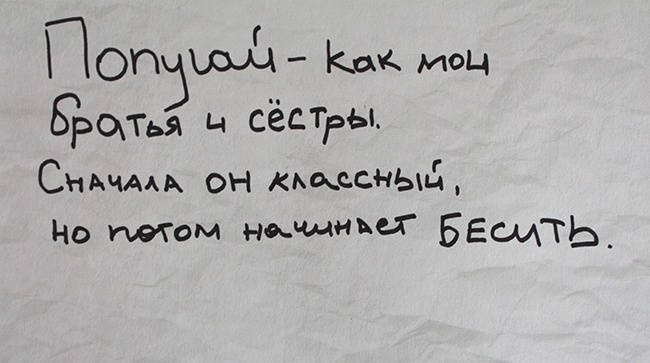 Попугай – как мои
братья и сёстры.
Сначала он классный,
но потом начинает БЕСИТЬ.